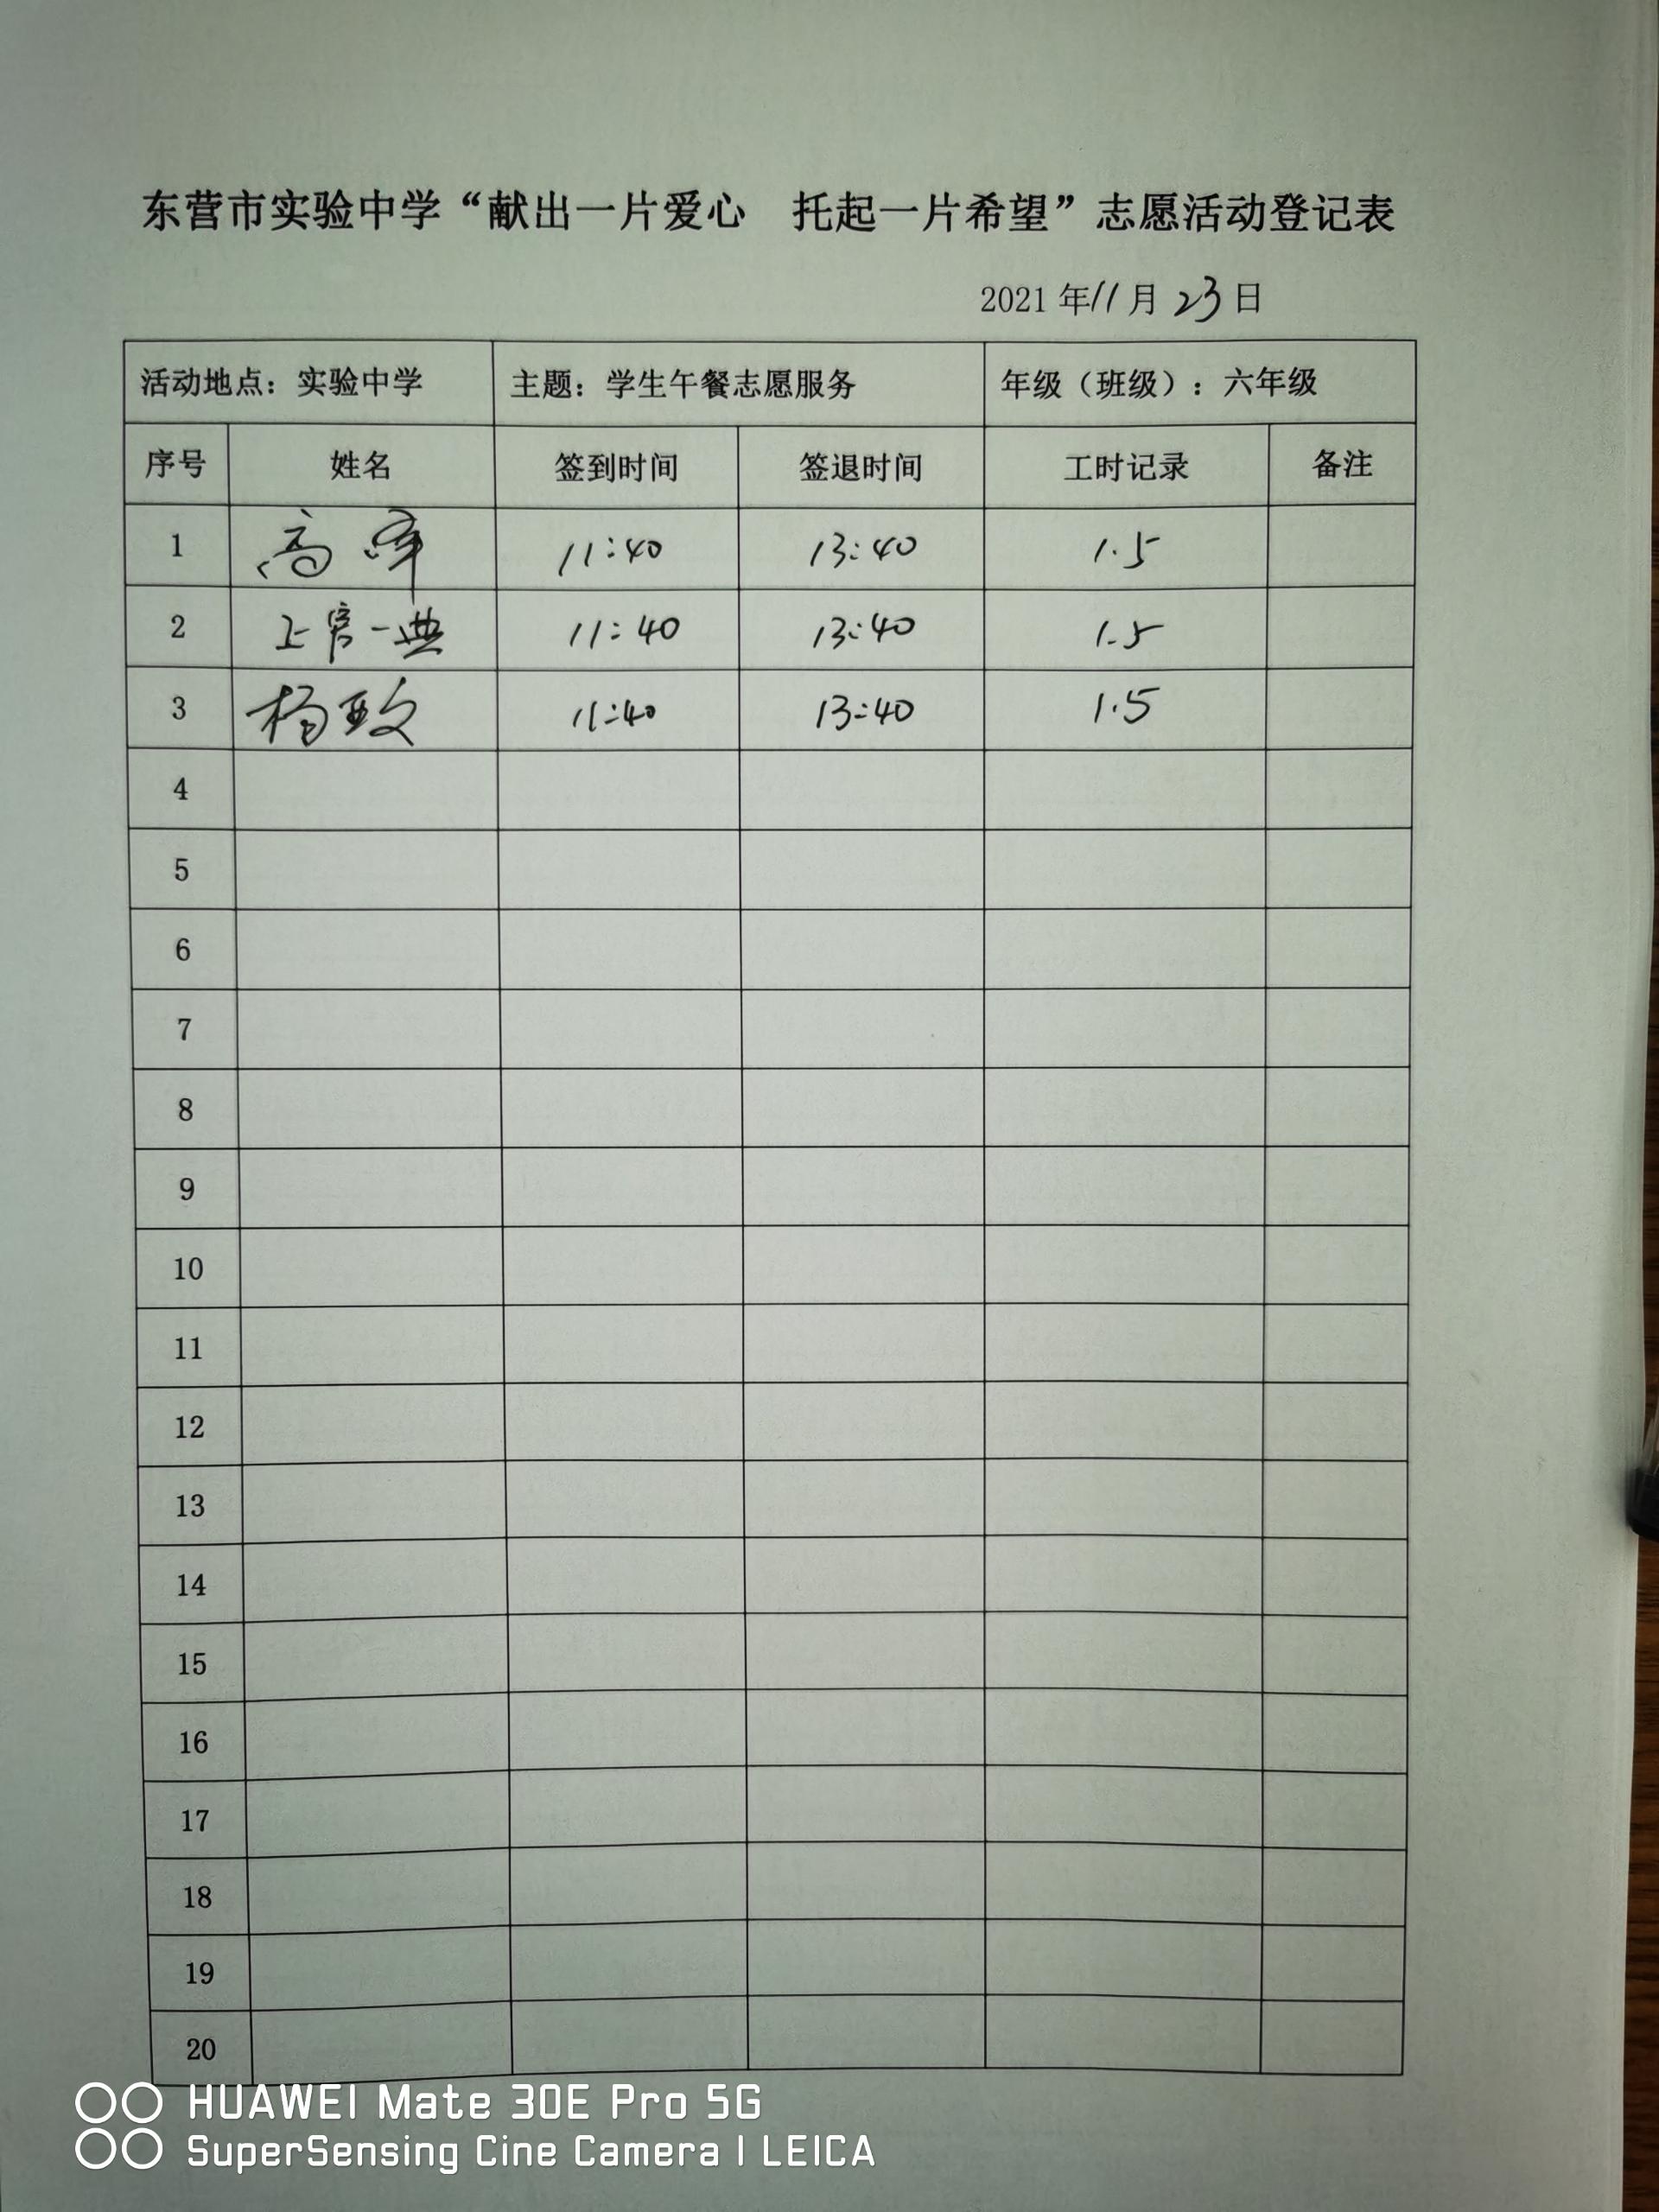 东营市实验中学“献出一片爱心 托起一片希望”志愿活动登记表
2021年11月23日
活动地点：实验中学 主题：学生午餐志愿服务 年级（班级）：六年级
序号 姓名 签到时间 签退时间 工时记录 备注
1 高峰 11:40 13:40 1.5
2 上官一典 11:40 13:40 1.5
3 杨 11:40 13:40 1.5
4
5
6
7
8
9
10
11
12
13
14
15
16
17
18
19
20
HUAWEI Mate 30E Pro 5G
SuperSensing Cine Camera | LEICA